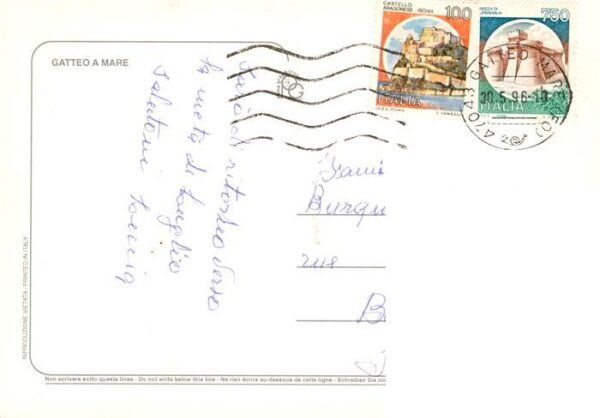 GATTEO A MARE
CASTELLO
ARAGONESE - ISCHIA
100
ITALIA
I.P.Z.S. - ROMA
ROCCA DI
URBISAGLIA
750
ITALIA
47043 GATTEO MARE (FO)
5.96
Sarò di ritorno verso
la metà di Luglio
Saluti
Burgu
rue
B
RIPRODUZIONE VIETATA - PRINTED IN ITALY
Non scrivere sotto questa linea - Do not write below this line - Ne rien écrire au-dessous de cette ligne - Schreiben Sie nic